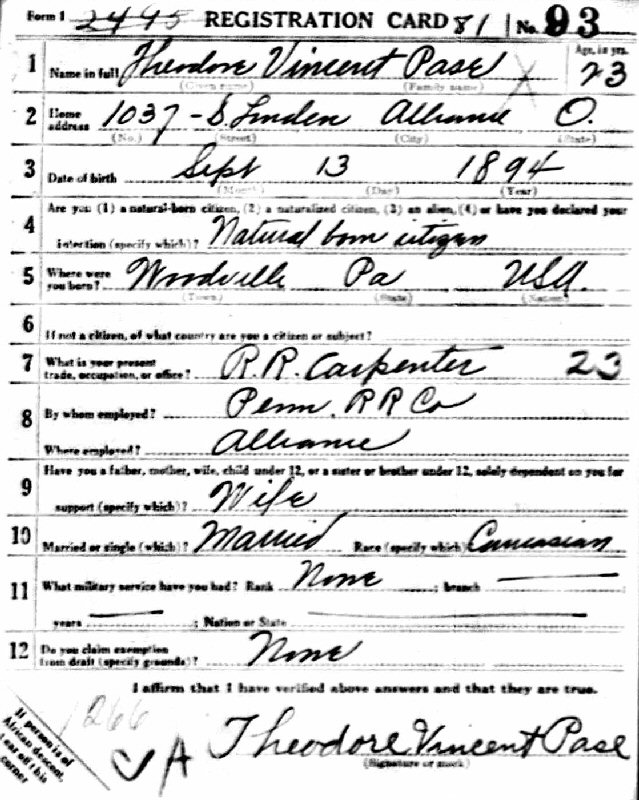 Form 1 2495 REGISTRATION CARD 81 No. 93
1 Name in full Theodore Vincent Pase Age, in yrs. 23
(Given name) (Family name)
2 Home address 1037 - S. Linden Alliance O.
(No.) (Street) (City) (State)
3 Date of birth Sept 13 1894
(Month) (Day) (Year)
4 Are you (1) a natural-born citizen, (2) a naturalized citizen, (3) an alien, (4) or have you declared your
intention (specify which)? Natural born citizen
5 Where were you born? Woodville Pa USA.
(Town) (State) (Nation)
6 If not a citizen, of what country are you a citizen or subject?
7 What is your present trade, occupation, or office? R.R. Carpenter 23
8 By whom employed? Penn. R R Co
Where employed? Alliance
9 Have you a father, mother, wife, child under 12, or a sister or brother under 12, solely dependent on you for
support (specify which)? Wife
10 Married or single (which)? Married Race (specify which) Caucasian
11 What military service have you had? Rank None ; branch
years ; Nation or State
12 Do you claim exemption from draft (specify grounds)? None
I affirm that I have verified above answers and that they are true.
If person is of African descent, tear off this corner
1266
✓ A Theodore Vincent Pase
(Signature or mark)